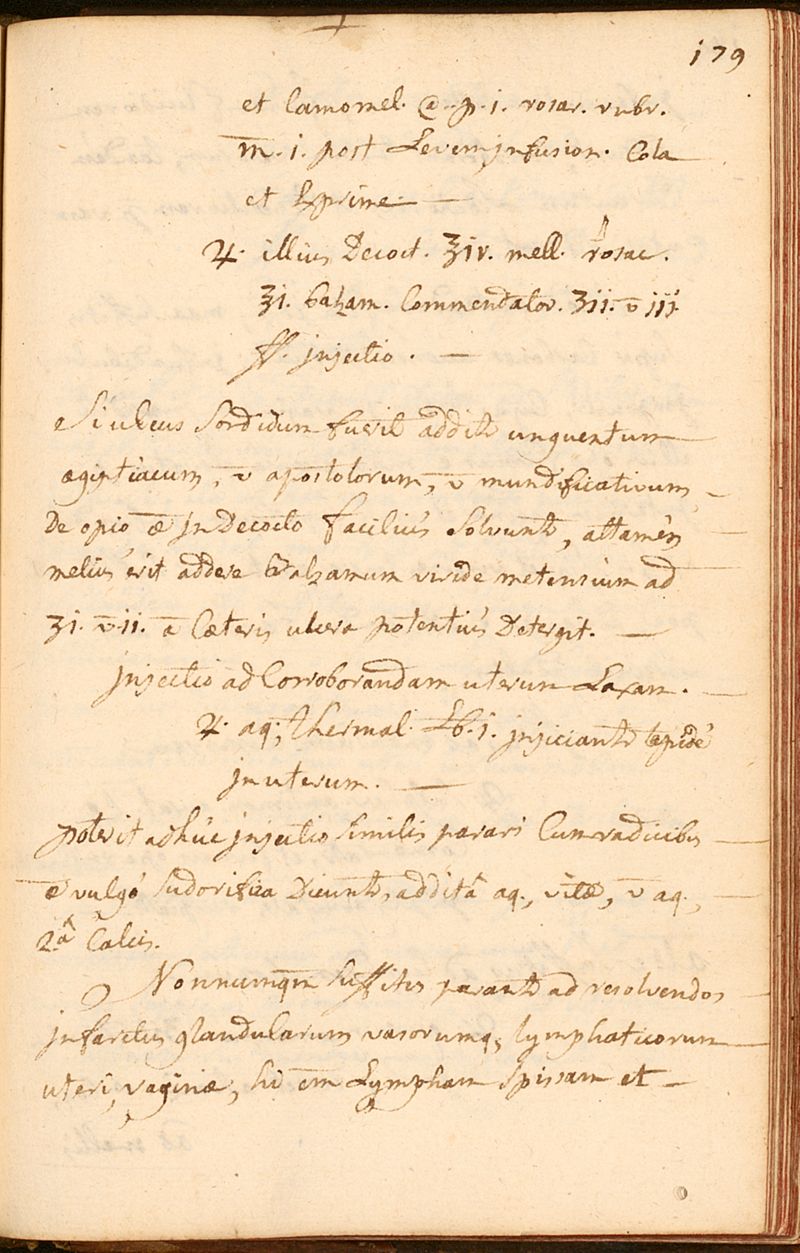 179
et Camomel. @ p. i. rosar. rubr.
m̅. i. post Levem jnfusion. Cola
et Exprime. —
♃. illius Decoct. ʒiv. mell. rosac.
ʒi. balzam. Commendator. ʒii. v̅ iii.
ff. jnjectio. —
Si ulcus Sordidum fuerit addit unguentum
ægiptiacum, v̅ apostolorum, v̅ mundificativum,
de opio jn Decocto facilius Solvunt, attamen
melius erit addere Balzamum viride metensium ad
ʒi. v̅ ii. a̅ Cæteris ulcera potentius Detergit. —
jnjectio ad Corroborandam uterum Laxam. —
♃. aq; thermal. Lb. j. jnjiciant tepidè
jn uterum. —
poterit adhuc jnjectio Similis parari Cum radicibus —
vulgó Sudorifica Dicunt, additâ aq., vitæ, v̅ aq.,
2.ᵃ Calcis.
Nonnumqm Suffitus parant ad resolvendos
jnfarctus glandularum vasorumq; lymphaticorum
uteri, vaginæ, hi em̅ Lympham Spissam et —